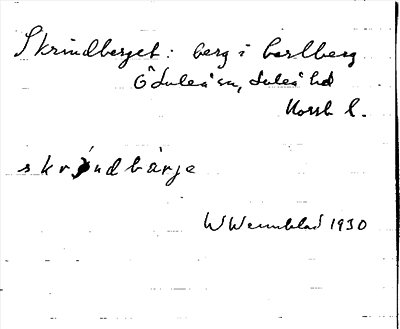 Skrindberget: berg i Carlberg
Ö Luleå sn, Luleå hd
Norrb l.
skrindbärje
W Wennblad 1930